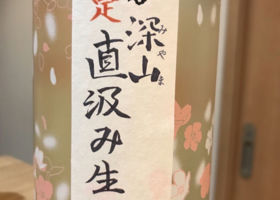 深山
みやま
直汲み生
定